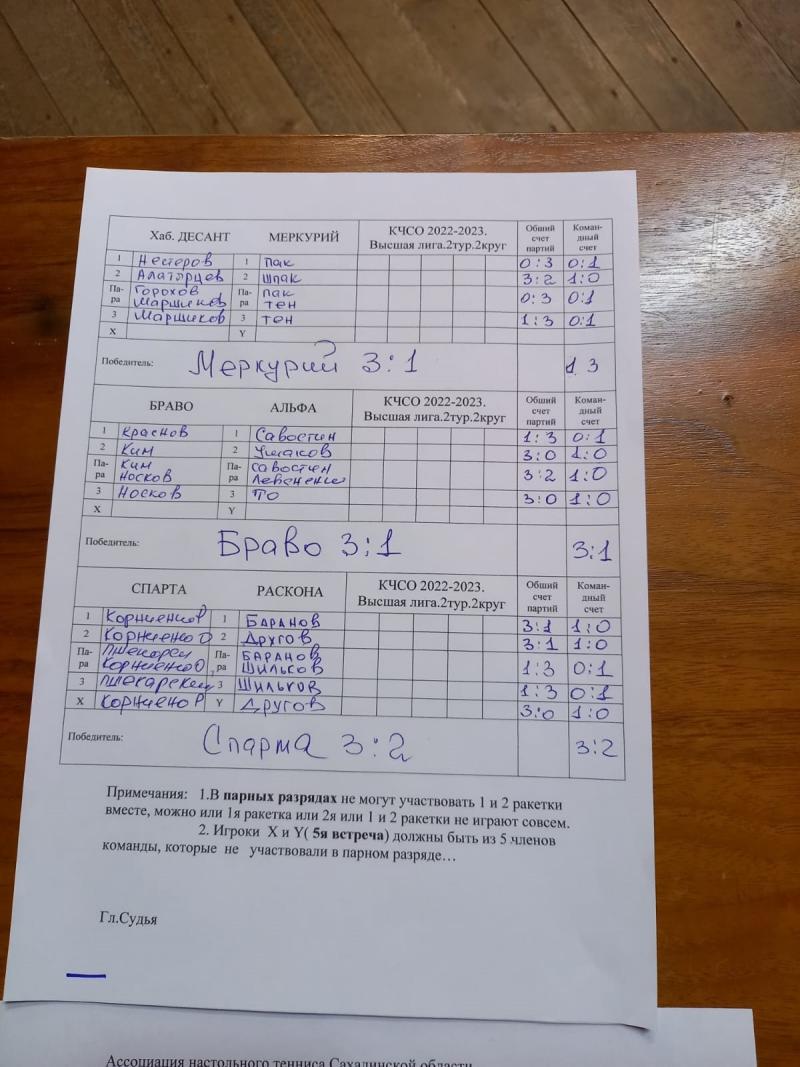 Хаб. ДЕСАНТ МЕРКУРИЙ КЧСО 2022-2023. Высшая лига.2тур.2круг Общий счет партий Коман-дный счет
1 Нестеров 1 Пак 0:3 0:1
2 Алатарцев 2 Шпак 3:2 1:0
Па-ра Горохов Маршиков Па-ра Пак Тен 0:3 0:1
3 Маршиков 3 Тен 1:3 0:1
X Y
Победитель: Меркурий 3:1 1 3
БРАВО АЛЬФА КЧСО 2022-2023. Высшая лига.2тур.2круг Общий счет партий Коман-дный счет
1 Краснов 1 Савостин 1:3 0:1
2 Ким 2 Ушаков 3:0 1:0
Па-ра Ким Носков Па-ра Савостин 3:2 1:0
3 Носков 3 ТО 3:0 1:0
X Y
Победитель: Браво 3:1 3:1
СПАРТА РАСКОНА КЧСО 2022-2023. Высшая лига.2тур.2круг Общий счет партий Коман-дный счет
1 1 Баранов 3:1 1:0
2 Корниенко 2 Другов 3:1 1:0
Па-ра Корниенко Па-ра Баранов Шильков 1:3 0:1
3 3 Шильков 1:3 0:1
X Корниено Р Y Другов 3:0 1:0
Победитель: Спарта 3:2 3:2
Примечания: 1.В парных разрядах не могут участвовать 1 и 2 ракетки
вместе, можно или 1я ракетка или 2я или 1 и 2 ракетки не играют совсем.
2. Игроки X и Y( 5я встреча) должны быть из 5 членов
команды, которые не участвовали в парном разряде…
Гл.Судья
Ассоциация настольного тенниса Сахалинской области